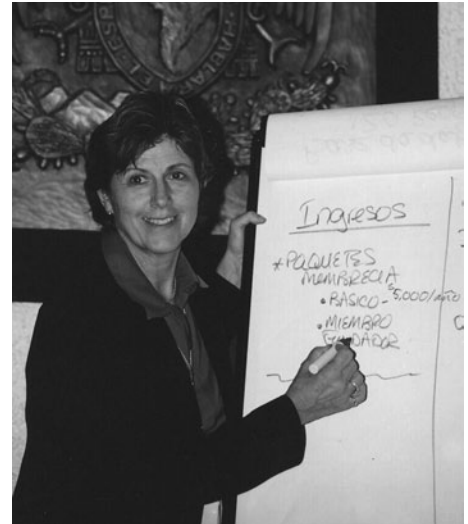 HABLARÁ EL ESP
Ingresos
* PAQUETES
MEMBRECIA
• BASICO - $5,000/año
• MIEMBRO
FUNDADOR